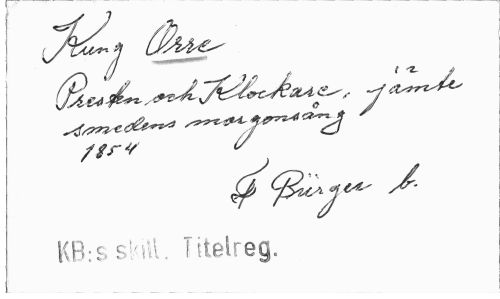 Kung Orre
Presten och Klockare, jämte
smedens morgonsång
1854
F Bürger b.
KB:s skill. Titelreg.